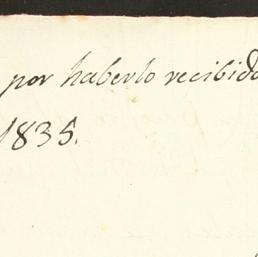 por haberlo recibido
1835.